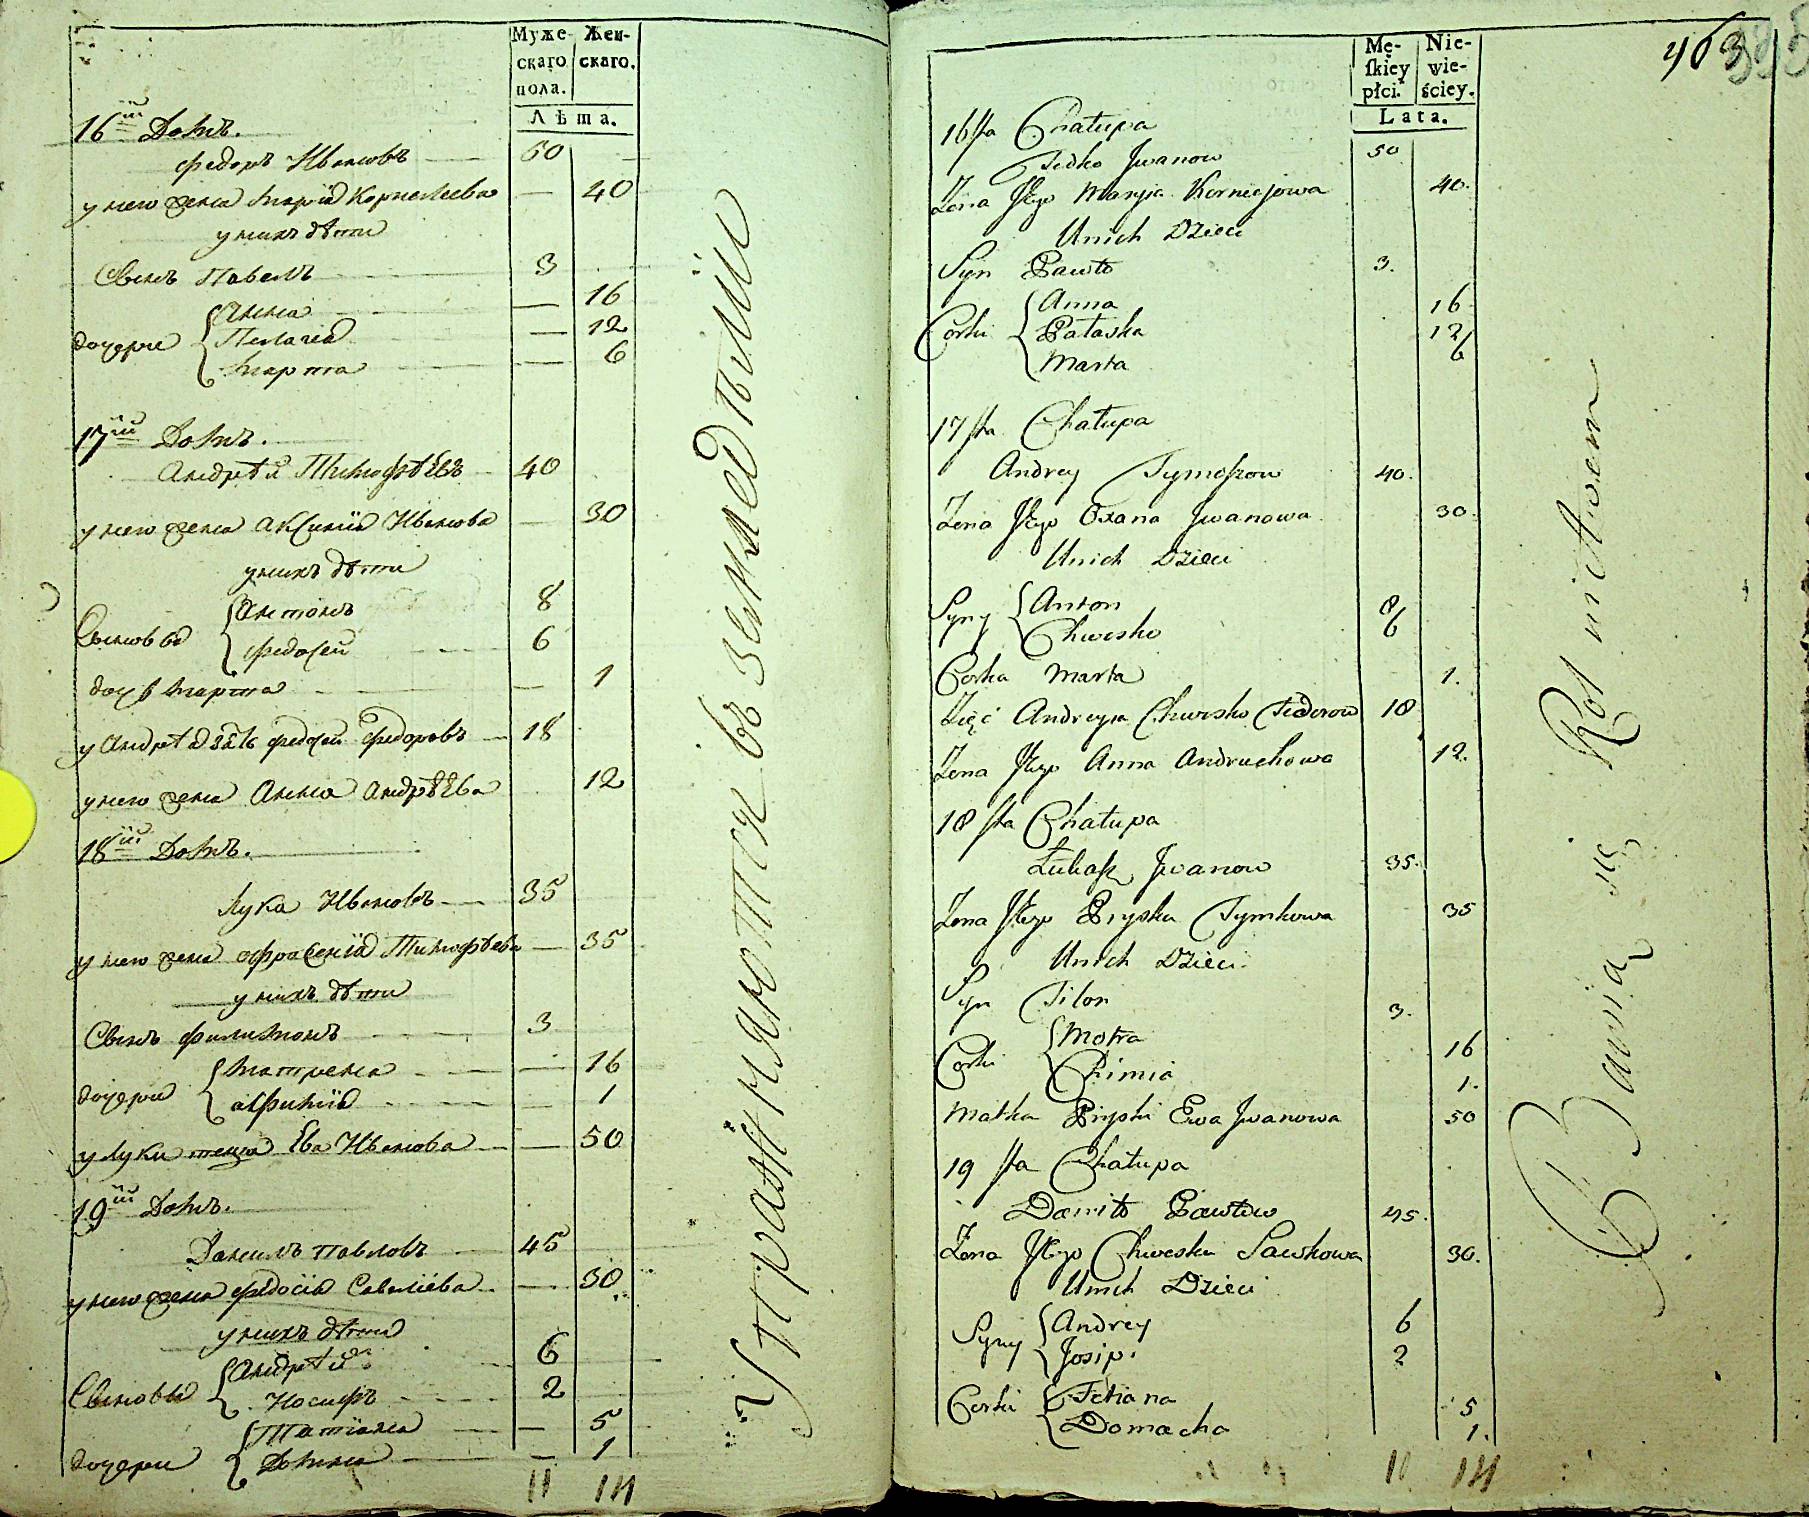 Муже-
скаго
пола.
Жен-
скаго.
Лѣта.
16й Домъ.
Федоръ Ивановъ 50
у него жена Марія Корнелѣева 40
у нихъ дѣти
Сынъ Павелъ 3
дочери Анна 16
Пелагея 12
Марта 6
17й Домъ.
Андрѣй Тимофѣевъ 40
у него жена Аксинія Иванова 30
у нихъ дѣти
Сыновья Антонъ 8
Федосей 6
дочь Марта 1
у Андрѣя зять Федосей Федоровъ 18
у него жена Анна Андрѣева 12
18й Домъ.
Лука Ивановъ 35
у него жена Афросенія Тимофѣева 35
у нихъ дѣти
Сынъ Филимонъ 3
дочери Матрена 16
Афимія 1
у Луки теща Ева Иванова 50
19й Домъ.
Данилъ Павловъ 45
у него жена Федосія Савелиева 30
у нихъ дѣти
Сыновья Андрѣй 6
Иосифъ 2
дочери Татіана 5
Домна 1
11 14
Упражняются въ земледѣліи
463
Mę-
skiey
płci.
Nie-
wie-
ściey.
Lata.
16sta Chałupa
Fedko Jwanow 50
Żona Jego Marya Korniejowa 40.
U nich Dzieci
Syn Pawło 3.
Corki Anna 16
Pałaska 12
Marta 6
17sta Chałupa
Andrey Tymoszow 40.
Żona Jego Oxana Jwanowa 30.
U nich Dzieci
Syny Anton 8
Chwesko 6
Corka Marta 1.
Zięć Andreya Chwesko Fedorow 18
Żona Jego Anna Andruchowa 12.
18sta Chałupa
Łukasz Jwanow 35.
Żona Jego Pryska Tymkowa 35
U nich Dzieci
Syn Filon 3.
Corki Motra 16
Chimia 1.
Matka Pryski Ewa Jwanowa 50
19sta Chałupa
Daniło Pawłow 45.
Żona Jego Chweska Sawkowa 30.
U nich Dzieci
Syny Andrey 6
Josip 2
Corki Tetiana 5
Domacha 1.
11 14
Bawią się Rolnictwem